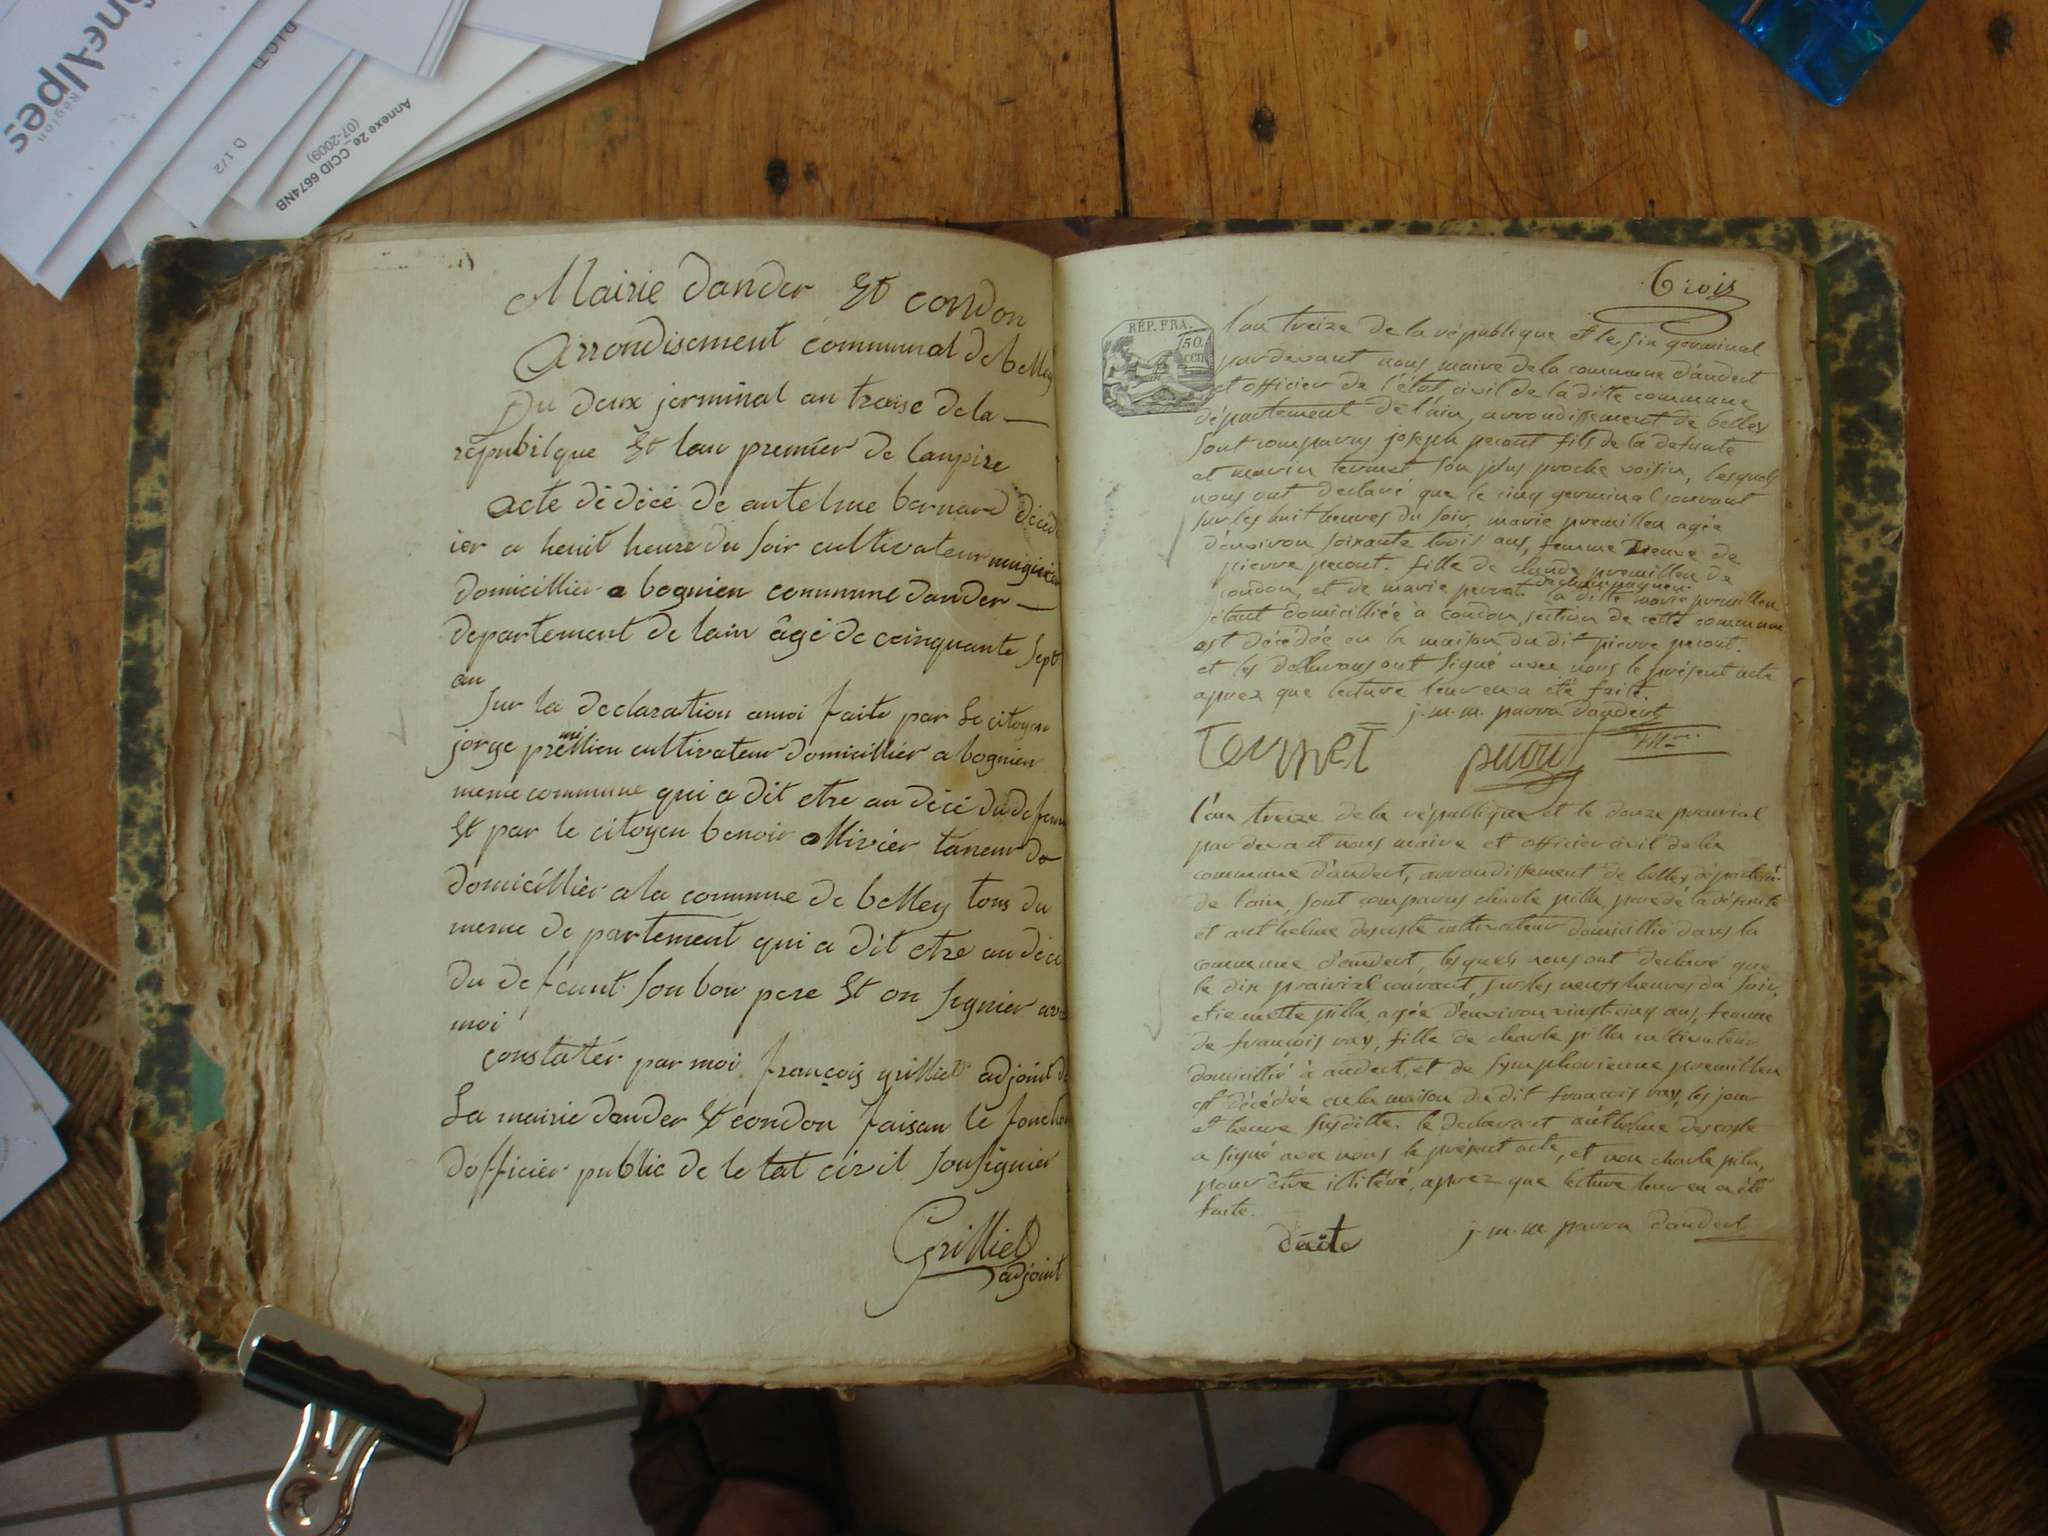 Région
D 1/2
Annexe 2e CCID 6674NB
(07-2009)
Mairie dander Et condon
Arrondisement communal de belley
Du deux jerminal an treise dela
republique Et lan premier de lanpire
acte dédécé de antelme bernard décédé
ier a heuit heure du soir cultivateur
domicillier a bognien commune dander
departement de lain âgé de ceinquante sept
an
sur la declaration amoi faite par le citoyen
jorge premillieu cultivateur domicillier a bognien
meme commune qui a dit etre au décé du defeun
Et par le citoyen benoir ollivier taneur do
domicillier a la commune de belley tous du
meme de partement qui a dit etre au décé
du defeunt son bou pere Et on signier avec
moi
constater par moi françois grilliet adjoint de
La mairie dander Et condon faisan le fonction
dofficier public de le tat civil sousignier
Grilliet
adjoint
trois
REP. FRA.
50
cen
l'an treize de la république et le six germinal
pardevant nous maire de la commune d'andert
et officier de l'état civil de la ditte commune
département de l'ain, arrondissement de belley
sont comparus joseph pecout fils de la defunte
et marin termet son plus proche voisin, lesquels
nous ont declaré que le cinq germinal courant
sur les huit heures du soir, marie premillieu agée
d'environ soixante trois ans, femme veuve de
pierre pecout. fille de claude premillieu de
condon, et de marie la ditte marie premillieu
étant domicilliée à condon, section de cette commune
est décédée en la maison du dit pierre pecout.
et les déclarans ont signé avec nous le présent acte
aprez que lecture leur en a été faite.
j. m. m. parra dandert
termet
l'an treize de la république et le douze prairial
par devant nous maire et officier civil de la
commune d'andert, arrondissement de belley départemt
de l'ain, sont comparus charle pilla, pere de la défunte
et anthelme descoste cultivateur domicillié dans la
commune d'andert, lesquels nous ont declaré que
le dix prairial courant, sur les neuf heures du soir,
etiennette pilla, agée d'environ vingt-cinq ans, femme
de françois ray, fille de charle pilla cultivateur
domicillié à andert, et de symphorienne premillieu
est décédée en la maison du dit françois ray, les jour
et heure susditte. le declarant anthelme descoste
a signé avec nous le présent acte, et non charle pilla,
pour être illitéré, aprez que lecture leur en a été
faite.
j. m. m. parra dandert